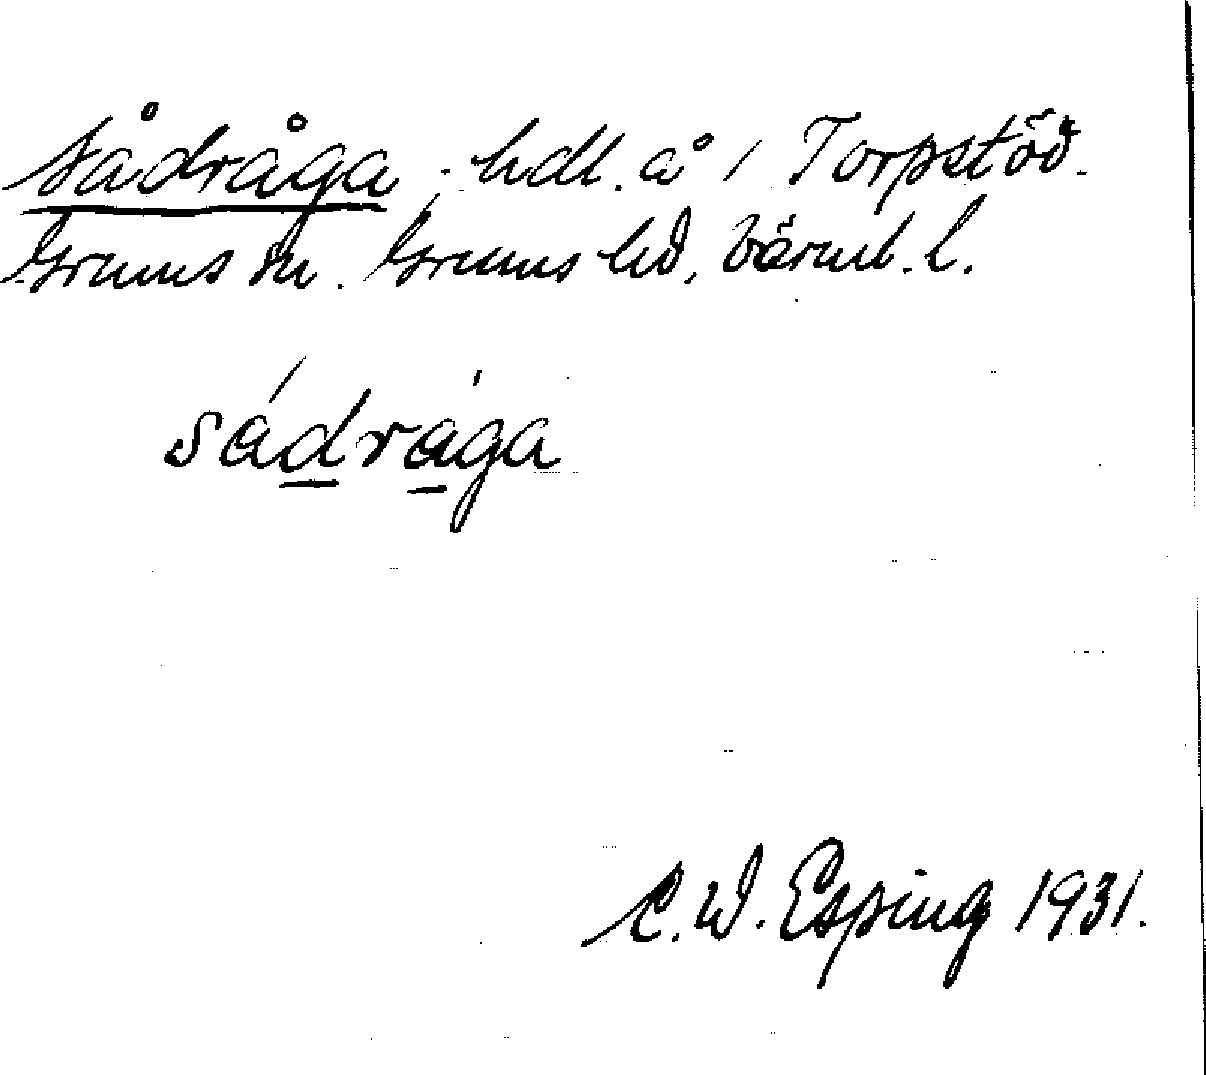 Sådråga, hdl. å i Torpstöd.
Grums sn. Grums hd, Värml. l.
sádrága
C. W. Esping 1931.